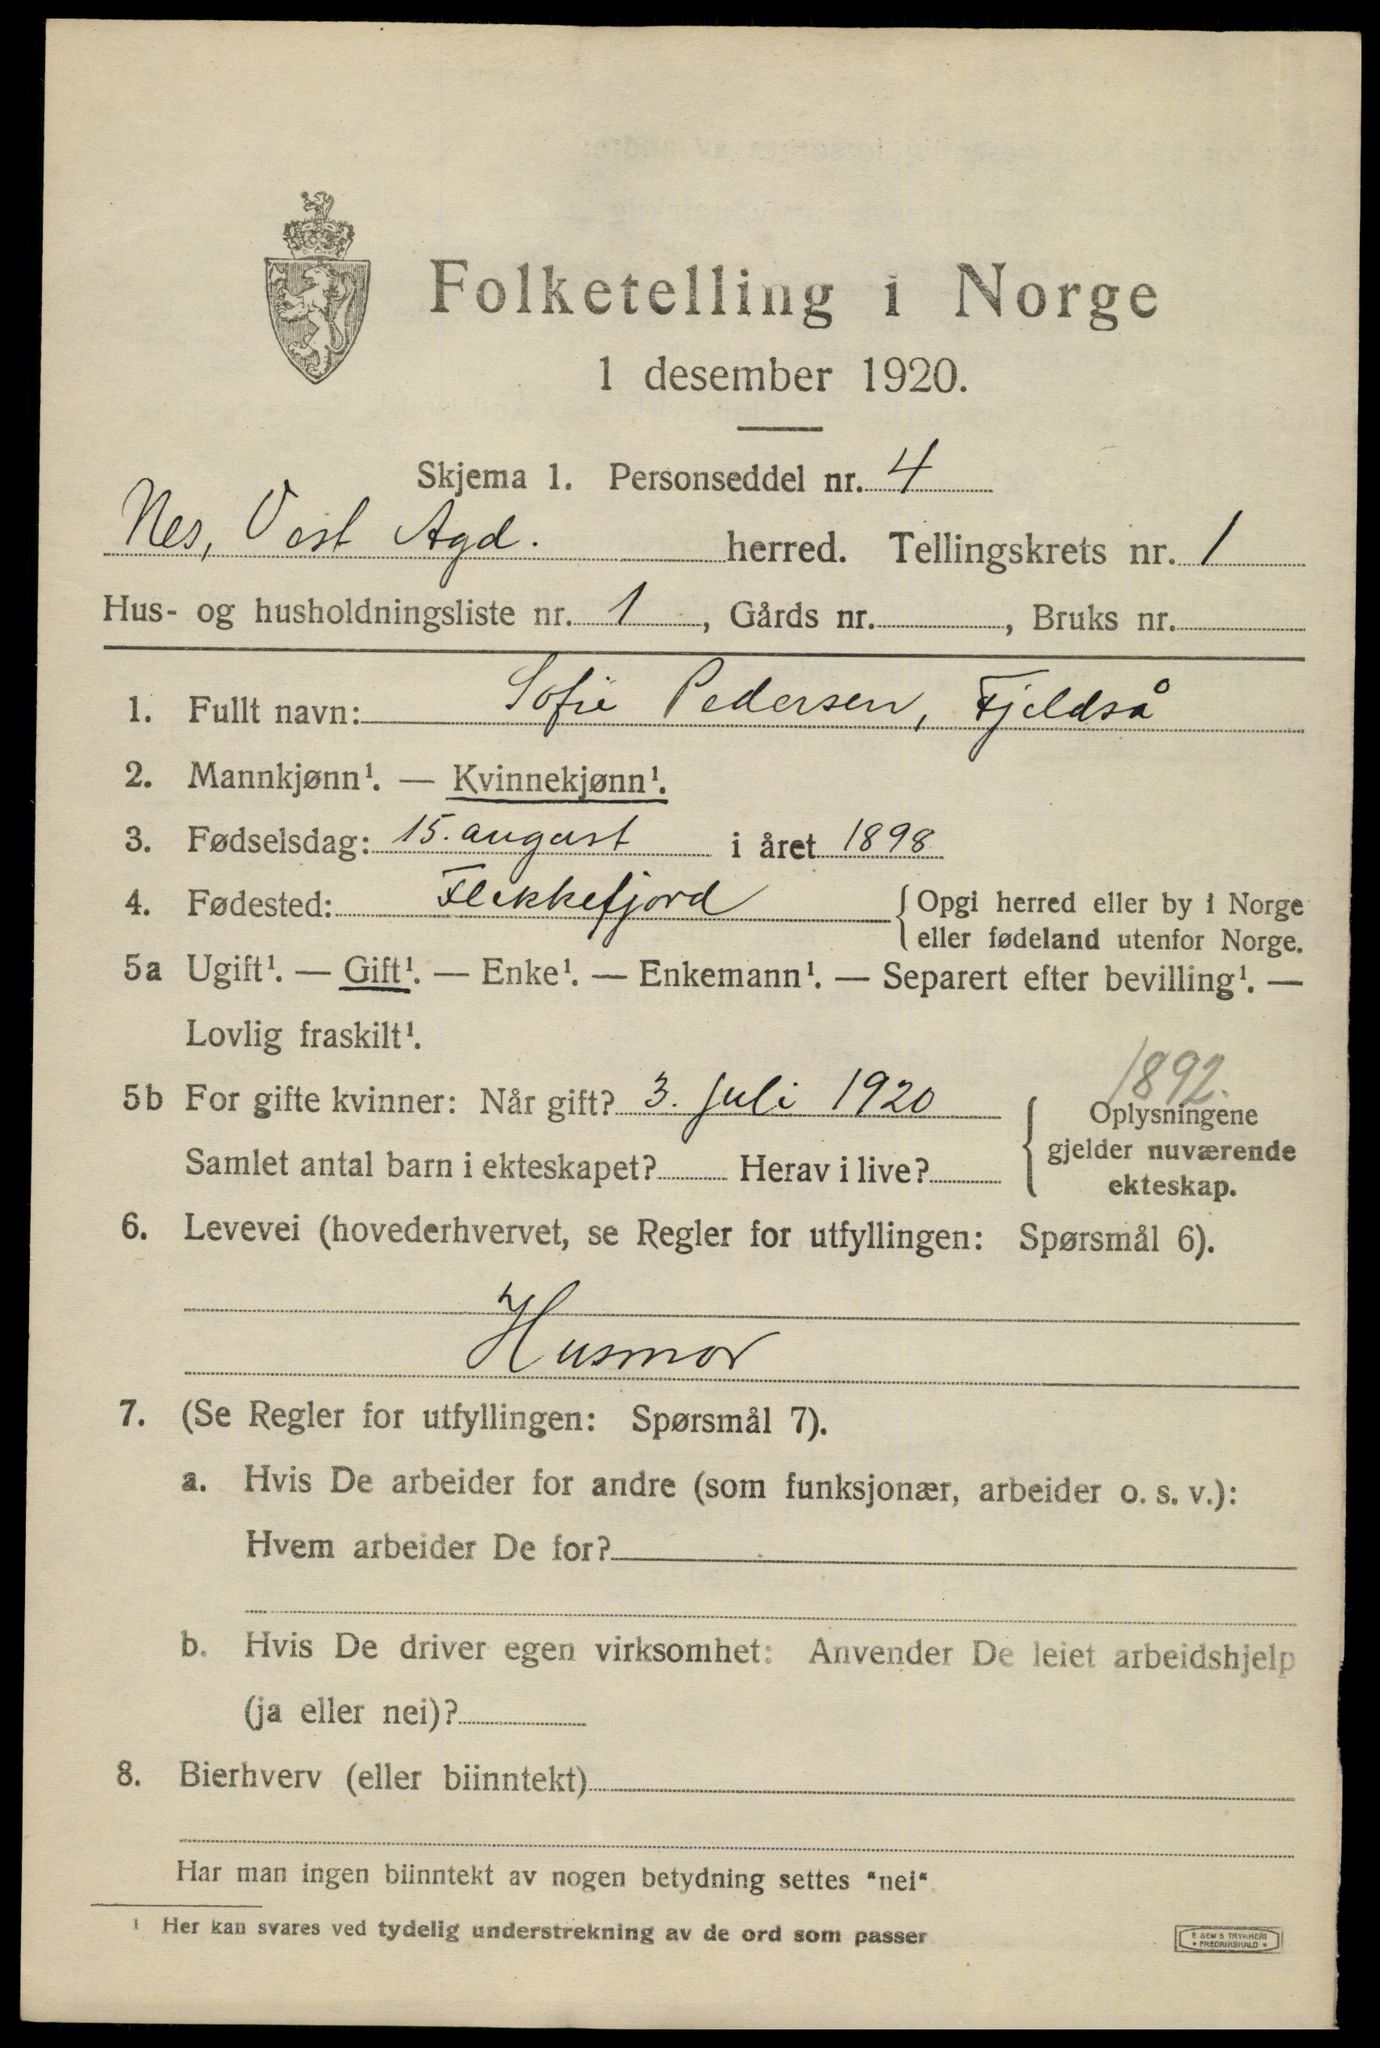 Folketelling i Norge
1 desember 1920.
Skjema 1. Personseddel nr. 4
Nes, Vest Agd. herred. Tellingskrets nr. 1
Hus- og husholdningsliste nr. 1, Gårds nr. , Bruks nr.
1. Fullt navn: Sofie Pedersen, Fjeldså
2. Mannkjønn¹. — Kvinnekjønn¹.
3. Fødselsdag: 15. august i året 1898
4. Fødested: Flekkefjord { Opgi herred eller by i Norge
eller fødeland utenfor Norge.
5a Ugift¹. — Gift¹. — Enke¹. — Enkemann¹. — Separert efter bevilling¹. —
Lovlig fraskilt¹.
1892.
5b For gifte kvinner: Når gift? 3. juli 1920
Samlet antal barn i ekteskapet? Herav i live?
Oplysningene
gjelder nuværende
ekteskap.
6. Levevei (hovederhvervet, se Regler for utfyllingen: Spørsmål 6).
Husmor
7. (Se Regler for utfyllingen: Spørsmål 7).
a. Hvis De arbeider for andre (som funksjonær, arbeider o. s. v.):
Hvem arbeider De for?
b. Hvis De driver egen virksomhet: Anvender De leiet arbeidshjelp
(ja eller nei)?
8. Bierhverv (eller biinntekt)
Har man ingen biinntekt av nogen betydning settes "nei".
¹ Her kan svares ved tydelig understrekning av de ord som passer
E. SEM'S TRYKKERI
• FREDRIKSHALD •